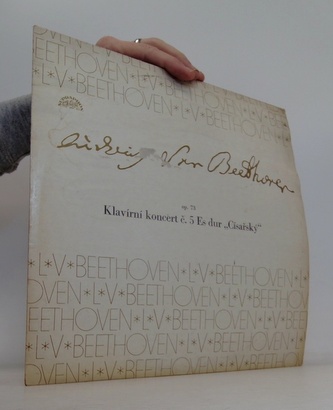 OVEN*L*V
BEETHOVEN*L*V
*L*V*BEETHOVEN*L*V*BEETHOVEN
BEETHOVEN*L*V*BEETHOVEN
Ludwig van Beethoven
op. 73
Klavírní koncert č. 5 Es dur „Císařský“
*L*V*BEETHOVEN*L*V*BEETHOVEN*
OVEN*L*V*BEETHOVEN*L*V*BEETHOVEN
*L*V*BEETHOVEN*L*V*BEETHOVEN*
OVEN*L*V*BEETHOVEN*L*V*BEETHOVEN
*L*V*BEETHOVEN*L*V*BEETHOVEN*
OVEN*L*V*BEETHOVEN